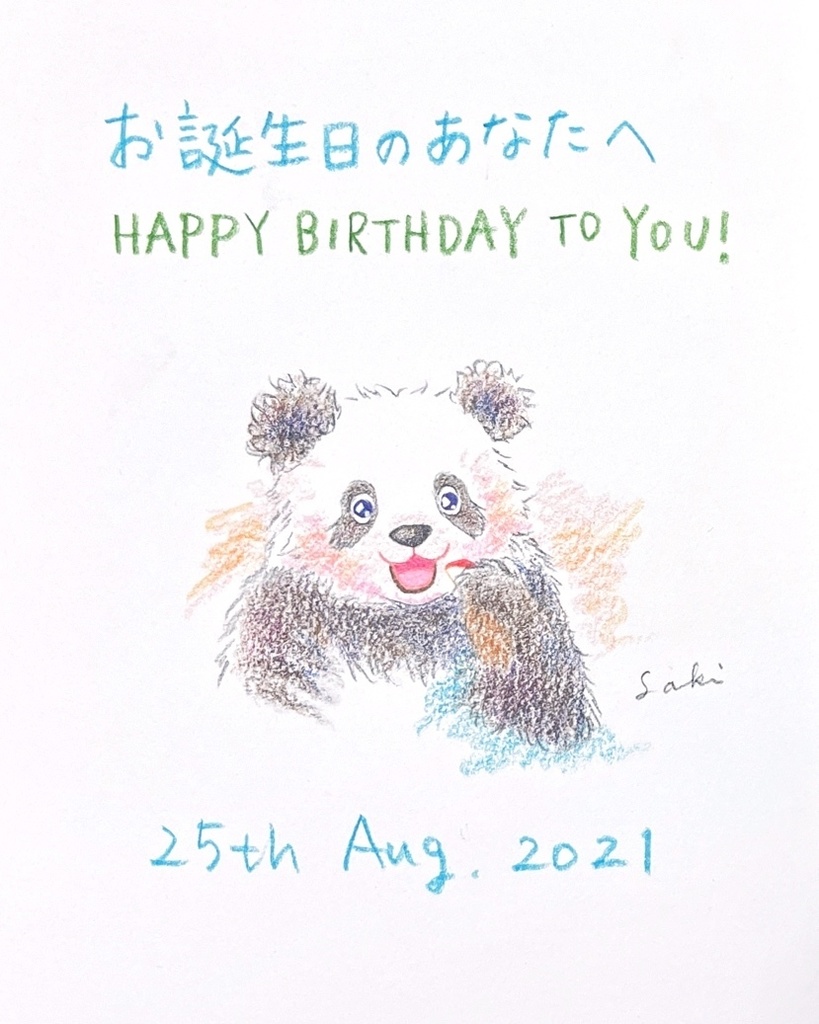 お誕生日のあなたへ
HAPPY BIRTHDAY TO YOU!
Saki
25th Aug. 2021